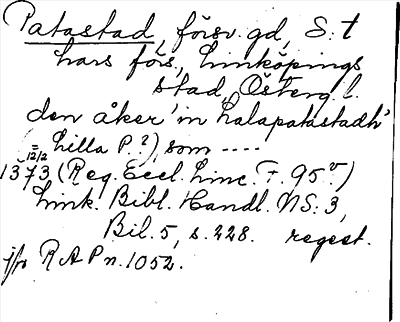 Patastad, försv. gd, S:t
Lars förs., Linköpings
stad, Österg. l.
den åker 'in Lalapatastadh'
(= Lilla P.?), som ----
12/2
1373 (Reg. Eccl. Linc. F. 95 v.)
Link. Bibl. Handl. NS: 3,
Bil. 5, s. 228. regest.
jfr RAP n. 1052.